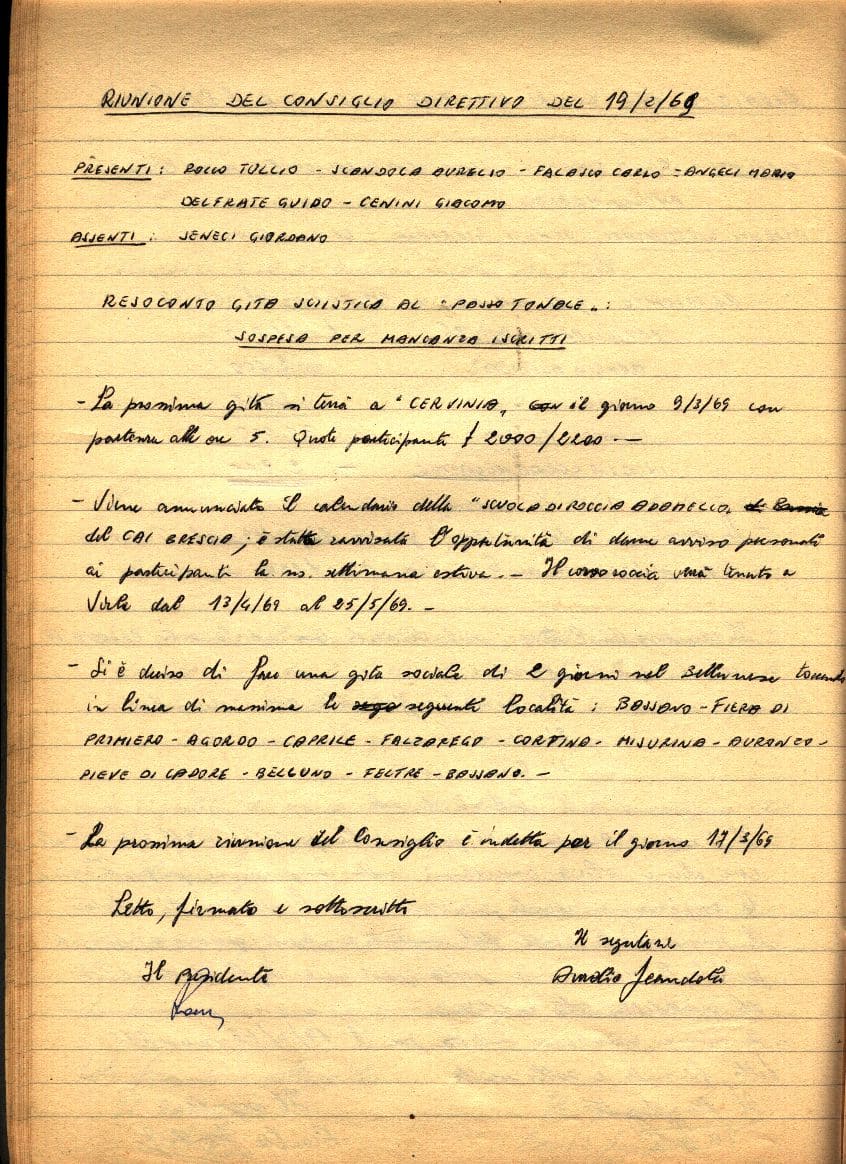 RIUNIONE DEL CONSIGLIO DIRETTIVO DEL 19/2/69
PRESENTI: ROCCO TULLIO - SCANDOLA AURELIO - FALASCO CARLO - ANGELI MARIO
DELFRATE GUIDO - CENINI GIACOMO
ASSENTI: SENECI GIORDANO
RESOCONTO GITA SCIISTICA AL "PASSO TONALE":
SOSPESA PER MANCANZA ISCRITTI
- La prossima gita si terrà a "CERVINIA" con il giorno 9/3/69 con
partenza alle ore 5. Quote partecipanti £ 2000/2200.-
- Viene annunciato il calendario della "SCUOLA DI ROCCIA ADAMELLO" di Brescia
del CAI BRESCIA; è stata ravvisata l'opportunità di darne avviso personale
ai partecipanti la ns. settimana estiva.- Il corso roccia verrà tenuto a
Virle dal 13/4/69 al 25/5/69.-
- Si è deciso di fare una gita sociale di 2 giorni nel Bellunese toccando
in linea di massima le seguenti località: BASSANO - FIERA DI
PRIMIERO - AGORDO - CAPRILE - FALZAREGO - CORTINA - MISURINA - AURONZO -
PIEVE DI CADORE - BELLUNO - FELTRE - BASSANO.-
- La prossima riunione del Consiglio è indetta per il giorno 17/3/69
Letto, firmato e sottoscritto
Il segretario
Il presidente Aurelio Scandola